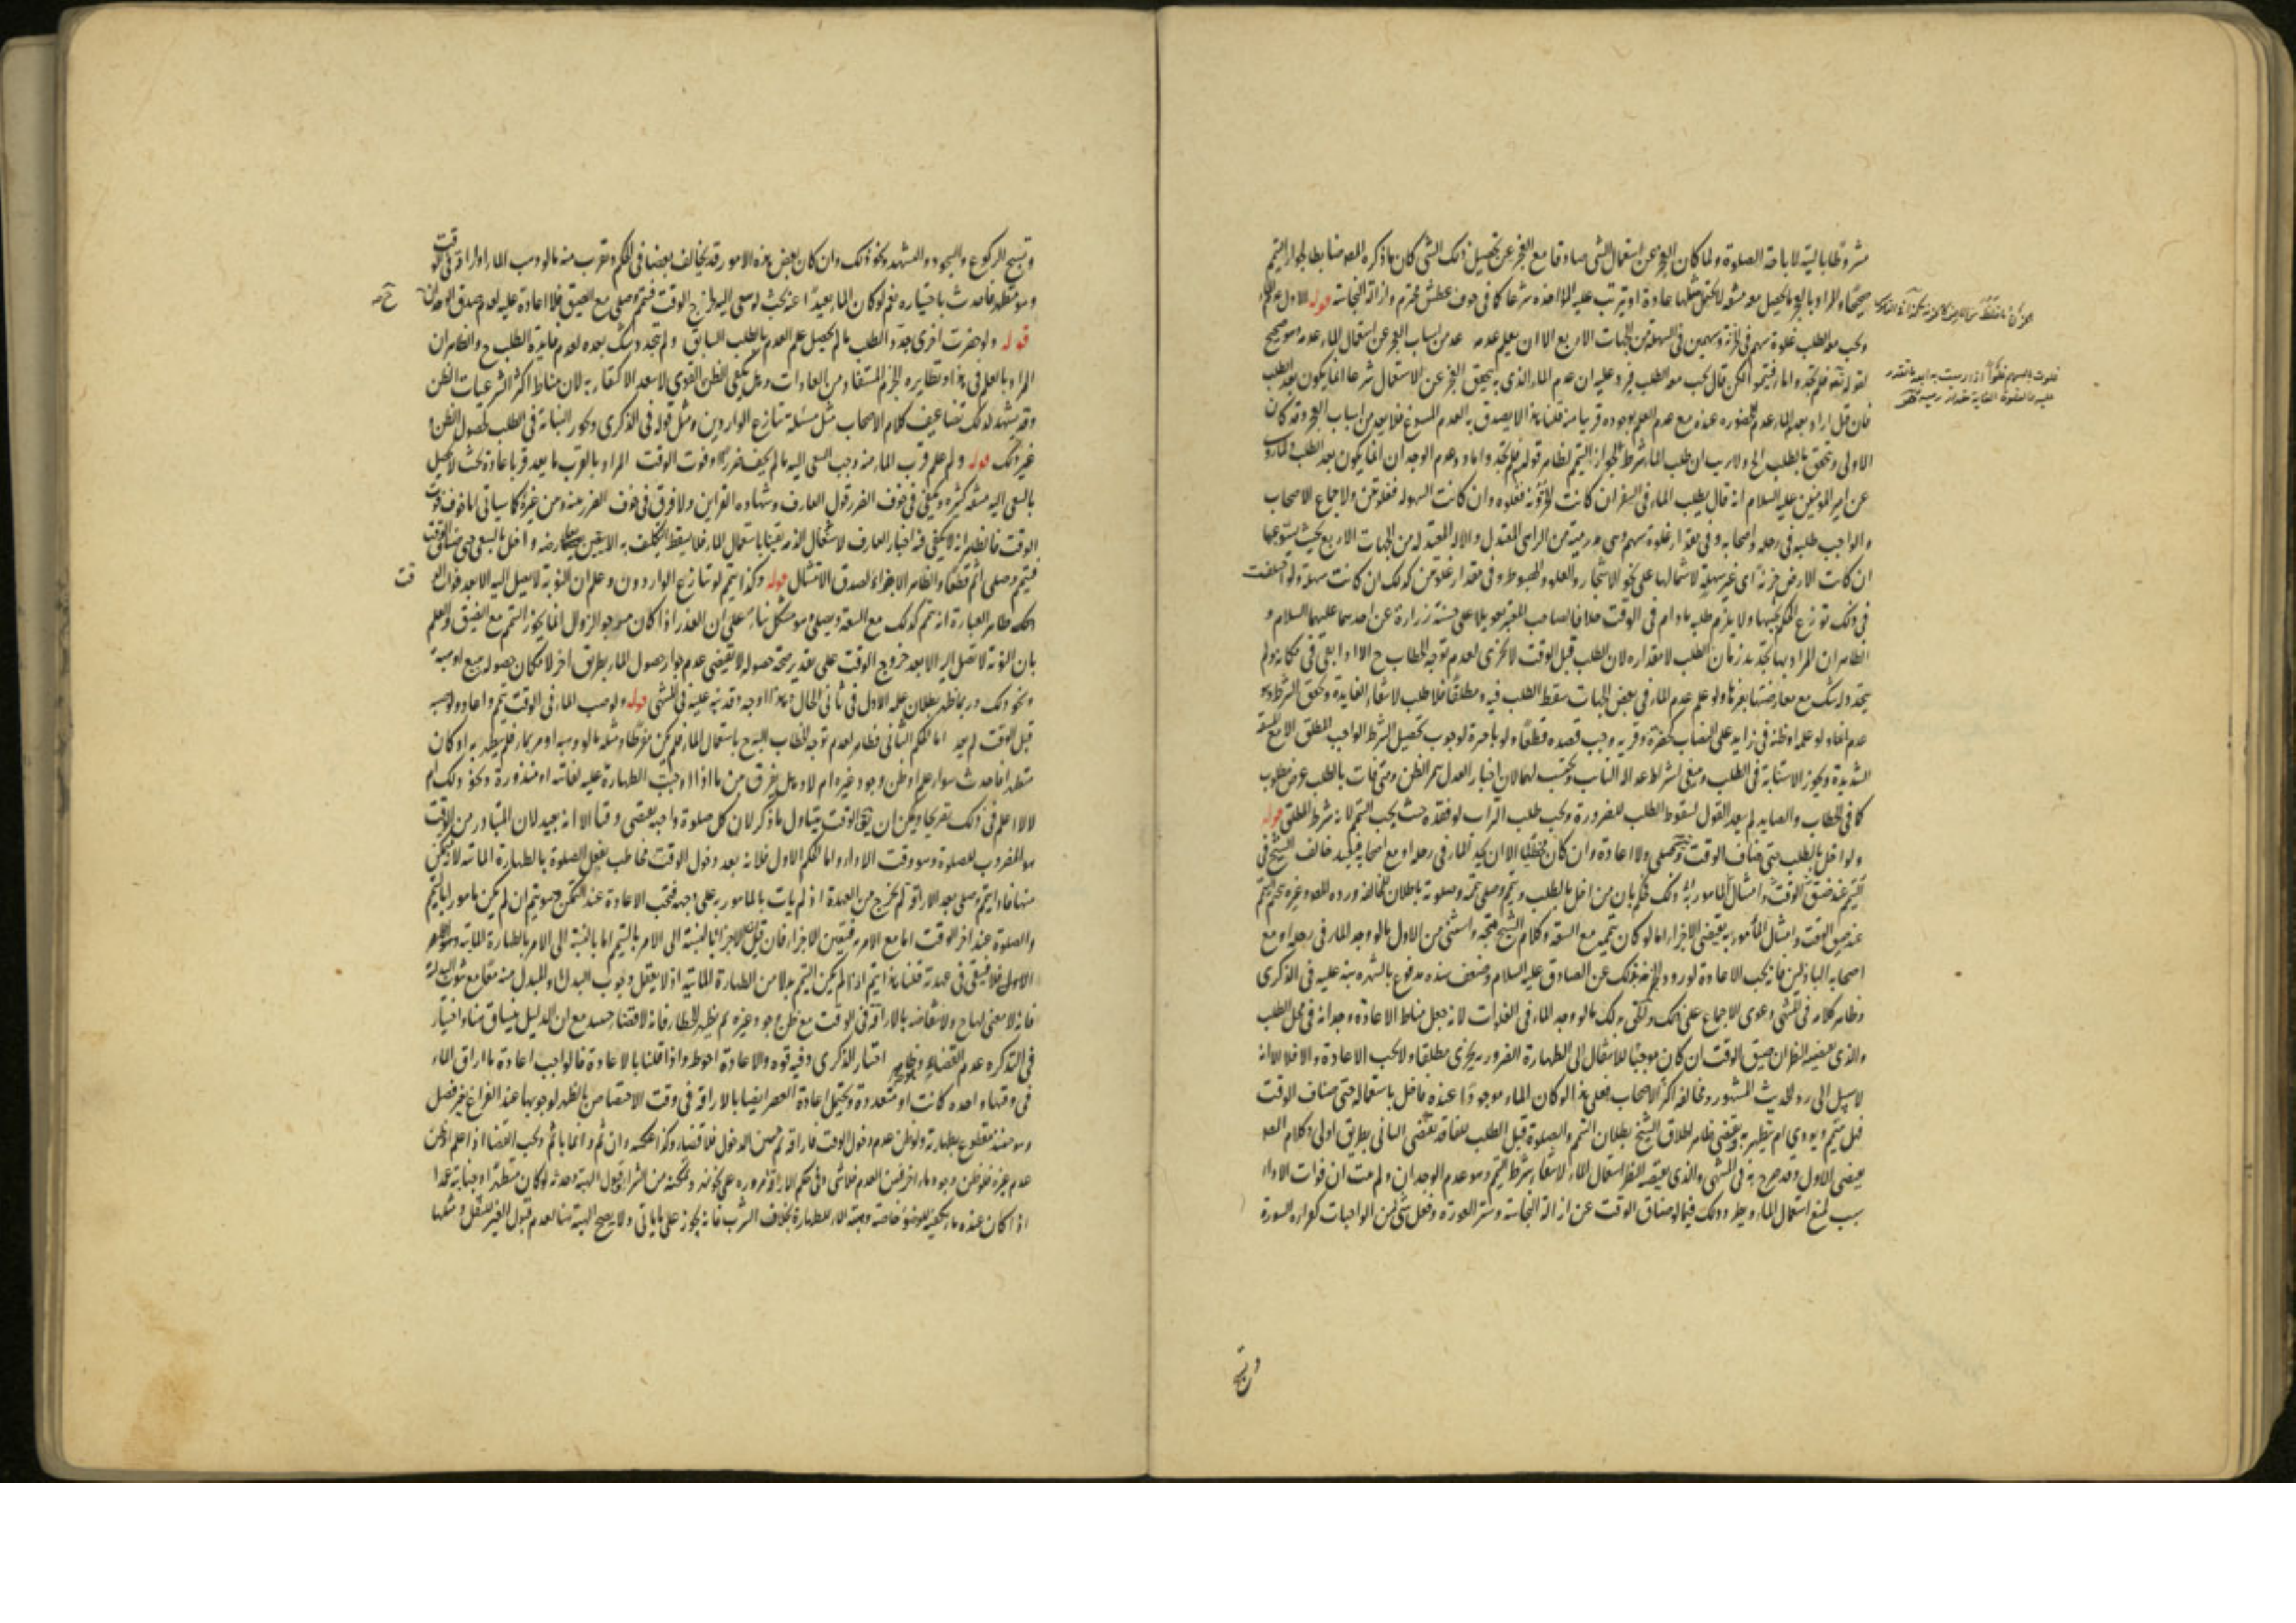 مشروطا بالنية لاباحة الصلوة ولما كان العجز عن استعمال الشئ صادقا مع العجز عن تحصيل ذلك الشئ كان ما ذكره المص ضابطا لجواز التيمم
صحيحا والمراد بالعجز ما يحصل معه مشقة لا يتحمل مثلها عادة او يترتب عليه المؤاخذه شرعا كما في خوف عطش محترم وازالة النجاسة قوله الاول عدم الماء
ويجب معه الطلب غلوة سهم في الحزنة وسهمين في السهلة من الجهات الاربع الا ان يعلم عدمه عد من اسباب العجز عن استعمال الماء عدمه وهو صحيح
لقوله تعالى فلم تجدوا ماء فتيمموا لكن قال يجب معه الطلب فيرد عليه ان عدم الماء الذي به يتحقق العجز عن الاستعمال شرعا انما يكون بعد الطلب
فان قيل اراد بعدم الماء عدم حضوره عنده مع عدم العلم بوجوده قريبا منه قلنا هذا لا يصدق به العدم المسوغ فلا يعد من اسباب العجز وقد كان
الاولى ويتحقق بالطلب الخ ولا ريب ان طلب الماء شرط لجواز التيمم لظاهر قوله فلم تجدوا ماء وعدم الوجدان انما يكون بعد الطلب ولما روي
عن امير المؤمنين عليه السلام انه قال يطلب الماء في السفر ان كانت الحزونة فغلوة وان كانت السهولة فغلوتين ولاجماع الاصحاب
والواجب طلبه في رحله واصحابه وفي مقدار غلوة سهم وهي رمية من الرامي المعتدل والالة المعتدلة من الجهات الاربع بحيث يستوعبها
ان كانت الارض حزنة اى غير سهلة لاشتمالها على نحو الاشجار والعلو والهبوط وفي مقدار غلوتين كذلك ان كانت سهلة ولو اختلفت
في ذلك توزع الحكم بحسبها ولا يلزم طلبه ما دام في الوقت خلافا لصاحب المعتبر تعويلا على حسنة زرارة عن احدهما عليهما السلام و
الظاهر ان المراد بها تجديد زمان الطلب لا مقداره لان الطلب قبل الوقت لا يجزى لعدم توجه الخطاب ح الا اذا بقي في مكانه ولم
يتجدد له شك مع معارضتها بغيرها ولو علم عدم الماء في بعض الجهات سقط الطلب فيه ومطلقا فلا طلب لانتفاء الفايدة وتحقق الشرط وهو
عدم الماء ولو علمه او ظنه في زايد على النصاب كخضرة وقرية وجب قصده قطعا ولو باجرة لوجوب تحصيل الشرط الواجب المطلق الا مع المشقة
الشديدة ويجوز الاستنابة في الطلب وينبغي اشتراط عدالة النايب ويحتسب لهما لان اخبار العدل يثمر الظن ومتى فات بالطلب غرض مطلوب
كما في الحطاب والصايد لم يبعد القول بسقوط الطلب للضرورة ويجب طلب التراب لو فقده حيث يجب التيمم لانه شرط المطلق قوله
ولو اخل بالطلب حتى ضاق الوقت تيمم وصلى ولا اعادة وان كان مخطئا الا ان يجد الماء في رحله او مع اصحابه فيعيد خالف الشيخ في
التيمم عند ضيق الوقت وامتثال المأمور به وذلك فحكم بان من اخل بالطلب وتيمم وصلى تيممه وصلوته باطلان للمخالفة ورده المص وغيره بتحتم التيمم
عند ضيق الوقت وامتثال المأمور به يقتضي الاجزاء اما لو كان تيممه مع السعة فكلام الشيخ متجه واستثنى من الاول ما لو وجد الماء في رحله او مع
اصحابه الباذلين فانه يجب الاعادة لورود الخبر بذلك عن الصادق عليه السلام وضعف سنده مدفوع بالشهرة نبه عليه في الذكرى
وظاهر كلامه في المنتهى دعوى الاجماع على ذلك والحق بذلك ما لو وجد الماء في الفلوات لانه جعل مناط الاعادة وجدانه في محل الطلب
والذي يقتضيه النظر ان ضيق الوقت ان كان موجبا للانتقال الى الطهارة الضرورية يجزى مطلقا ولا يجب الاعادة والا فلا الا انه
لا سبيل الى رد الحديث المشهور ومخالفة اكثر الاصحاب فعلى هذا لو كان الماء موجودا عنده فاخل باستعماله حتى ضاق الوقت
فهل يتيمم ويؤدي ام يتطهر به ويقضي ظاهر اطلاق الشيخ بطلان التيمم والصلوة قبل الطلب للفاقد يقتضي الثاني بطريق اولى وكلام المص
يقتضي الاول وقد صرح به في المنتهى والذي يقتضيه النظر استعمال الماء لانتفاء شرط التيمم وهو عدم الوجدان ولم يثبت ان فوات الاداء
سبب لمنع استعمال الماء ويطرد ذلك فيما لو ضاق الوقت عن ازالة النجاسة وستر العورة وفعل شئ من الواجبات كقراءة السورة
وتسبيح الركوع والسجود والتشهد ونحو ذلك وان كان بعض هذه الامور قد يخالف بعضا في الحكم ويقرب منه ما لو وهب الماء او اراقه في الوقت
وهو متطهر فاحدث باختياره نعم لو كان الماء بعيدا عنه بحيث لو سعى اليه لخرج الوقت فتيمم وصلى مع الضيق فلا اعادة عليه لعدم صدق الوجدان ح
قوله ولو حضرت اخرى جدد الطلب ما لم يحصل علم العدم بالطلب السابق ولم يتجدد شك بعده لعدم فايدة الطلب ح والظاهر ان
المراد بالعلم في هذا ونظايره الجزم المستفاد من العادات وهل يكفي الظن القوي لا يبعد الاكتفاء به لان مناط اكثر الشرعيات الظن
وقد يشهد لذلك تضاعيف كلام الاصحاب مثل مسئلة تنازع الواردين ومثل قوله في الذكرى ويجوز النيابة في الطلب لحصول الظن و
غير ذلك قوله ولو علم قرب الماء منه وجب السعي اليه ما لم يخف ضررا او فوت الوقت المراد بالقرب ما يعد قربا عادة بحيث لا يحصل
بالسعي اليه مشقة كثيرة ويكفي في خوف الضرر قول العارف وشهادة القراين ولا فرق في خوف الضرر بينه وبين غيره كما سيأتي اما خوف فوت
الوقت فالظاهر انه لا يكفي فيه اخبار العارف لاشتغال الذمة يقينا باستعمال الماء فلا يسقط التكليف به الا بيقين يعارضه واخل بالسعي حتى ضاق الوقت
فتيمم وصلى اثم قطعا والظاهر الاجزاء لصدق الامتثال قوله وكذا يتيمم لو تنازع الواردون وعلم ان النوبة لا تصل اليه الا بعد فوات الوقت
ظاهر العبارة انه يتيمم كذلك مع السعة ويصلي وهو مشكل بناء على ان العذر اذا كان مرجو الزوال انما يجوز التيمم مع الضيق والعلم
بان النوبة لا تصل اليه الا بعد خروج الوقت على تقدير صحة حصوله لا يقتضي عدم جواز حصول الماء بطريق اخر لامكان حصوله ببيع او هبة
ونحو ذلك وربما ظهر بطلان علمه الاول في ثاني الحال وهذا اوجه وقد نبه عليه في المنتهى قوله ولو صب الماء في الوقت تيمم واعاد ولو صبه
قبل الوقت لم يعد اما الحكم الثاني فظاهر لعدم توجه الخطاب اليه ح باستعمال الماء فلم يكن مفرطا ومثله ما لو وهبه او مر بماء فلم يتطهر به او كان
متطهرا فاحدث سواء علم او ظن وجود غيره ام لا وهل يفرق بين ما اذا وجبت الطهارة عليه لفائتة او منذورة ونحو ذلك ام
لا لا اعلم في ذلك تصريحا ويمكن ان يق الوقت يتناول ما ذكر لان كل صلوة واجبة يقتضي وقتا الا انه بعيد لان المتبادر من الوقت
هو المضروب للصلوة وهو وقت الاداء واما الحكم الاول فلانه بعد دخول الوقت مخاطب بفعل الصلوة بالطهارة المائية لانه متمكن
منها فاذا تيمم وصلى بعد الاراقة لم يخرج من العهدة اذ لم يات بالمأمور به على وجهه فتجب الاعادة عند التمكن وهو يتم ان لم يكن مأمورا بالتيمم
والصلوة عند اخر الوقت اما مع الامر به فيتعين الاجزاء فان قيل الاجزاء بالنسبة الى الامر بالتيمم اما بالنسبة الى الامر بالطهارة المائية وهو الامر
الاول فلا فيبقى في عهدته قلنا هذا يتم اذا لم يكن التيمم بدلا من الطهارة المائية اذ لا يعقل وجوب البدل والمبدل منه معا مع ثبوت البدلية
في التذكرة عدم القضاء وظاهر اختيار الذكرى وفيه قوة والاعادة احوط واذا قلنا بالاعادة فالواجب اعادة ما اراق الماء
في وقتها واحدة كانت او متعددة ويحتمل اعادة العصر ايضا بالاراقة في وقت الاختصاص بالظهر لوجوبها عند الفراغ بغير فصل
اذا كان عنده ماء يكفيه للوضوء خاصة وهبة الماء للطهارة بخلاف الشرب فانه يجوز على ما ياتي ولا يصح الهبة هنا لعدم قبول الغير للنقل ومثلها